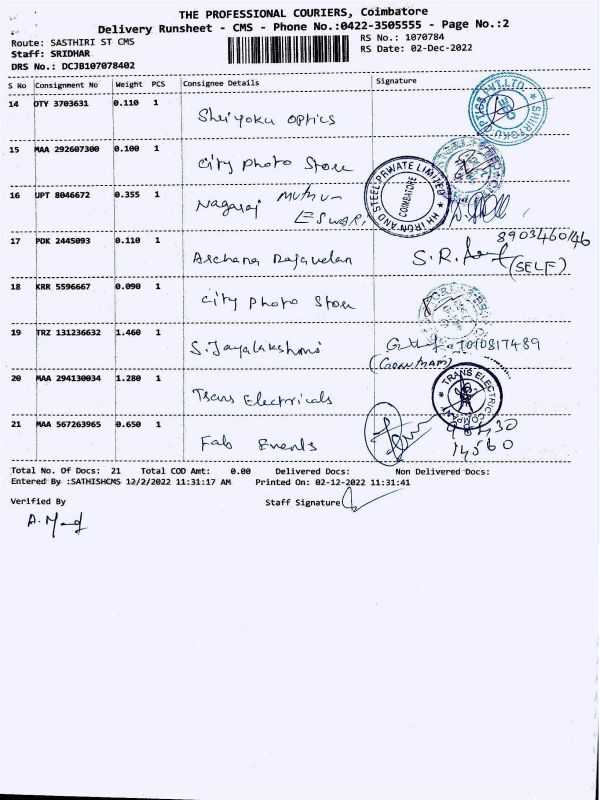 THE PROFESSIONAL COURIERS, Coimbatore
Delivery Runsheet - CMS - Phone No.:0422-3505555 - Page No.:2
Route: SASTHIRI ST CMS RS No.: 1070784
Staff: SRIDHAR RS Date: 02-Dec-2022
DRS No.: DCJB107078402
S No Consignment No Weight PCS Consignee Details Signature
14 OTY 3703631 0.110 1 Shri yoku optics
15 MAA 292607300 0.100 1 City Photo Store
16 UPT 8046672 0.355 1 Nagaraj Muthu
ESWARI
HH IRON AND STEEL PRIVATE LIMITED
COIMBATORE
8903460146
17 PDK 2445093 0.110 1 Archana Rajavelan S.R.
(SELF)
18 KRR 5596667 0.090 1 City Photo Store
19 TRZ 131236632 1.460 1 S. Jayalakshmi 7010817489
(GOWTHAM)
20 MAA 294130034 1.280 1 Trans Electricals
TRANS ELECTRIC COMPANY
21 MAA 567263965 0.650 1 Fab Events
14560
Total No. Of Docs: 21 Total COD Amt: 0.00 Delivered Docs: Non Delivered Docs:
Entered By :SATHISHCMS 12/2/2022 11:31:17 AM Printed On: 02-12-2022 11:31:41
Verified By Staff Signature